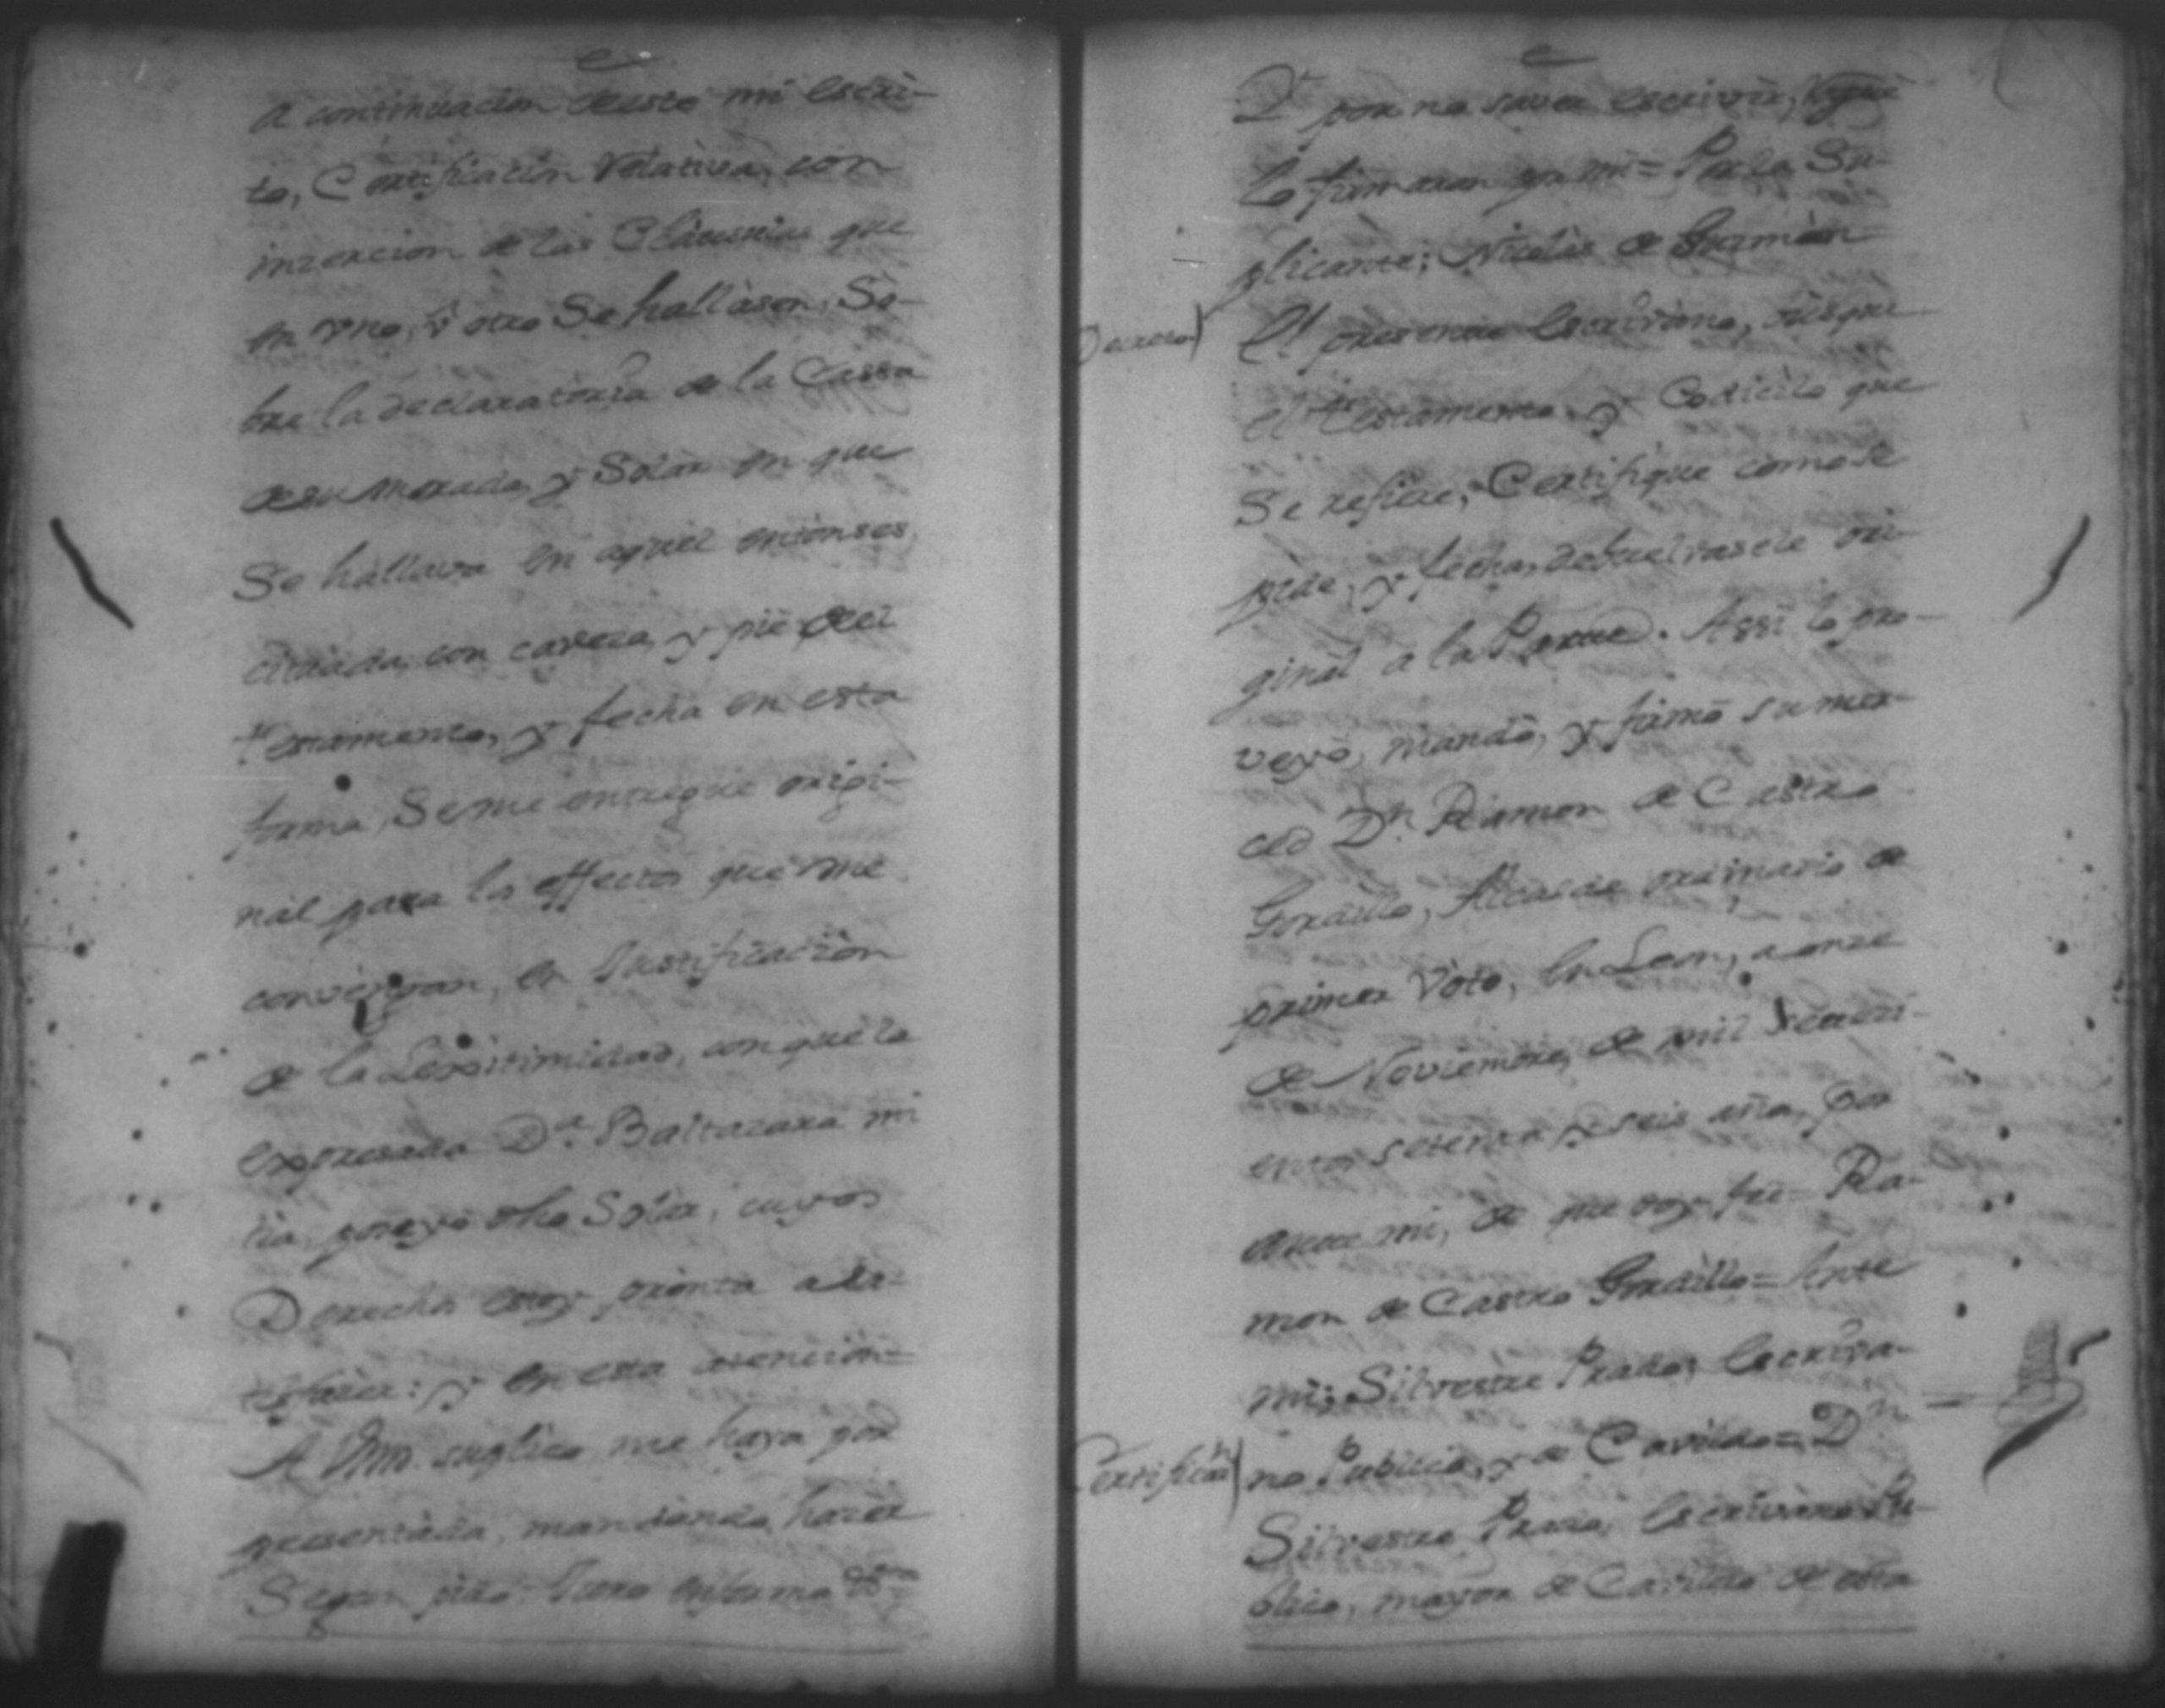 a continuacion de este mi escri-
to, Certificacion Relativa, con
inzercion de las Clausulas que
en uno, y otro Se hallasen So-
bre la declaratoria de la Cassa
de su morada, y Solar en que
Se hallava en aquel entonses
citiada, con caveza, y pie del
testamento, y fecha en esta
forma, Se me entregue origi-
nal para los effectos que me
convengan, en Justificacion
de la Lexitimidad, con que la
expresada D.ª Baltazara mi
tia, poseyo dho Solar, cuyos
Derechos estoy pronta a sa-
tisfacer: y en esta atencion=
A Vm. suplico me haya por
presentada, mandando hacer
Segun pido. Juro en forma
por no saver escrivir,
lo firmaran por mi= Por la Su-
plicante; Nicolas de Guzmàn=
Decreto) El presente Escrivano, busque
el testamento, y Codicilo que
Se refiere, Certifique como se
pide, y fecha, debuelvasele ori-
ginal a la Parte. Assi lo pro-
veyò, mandò, y firmò su mer-
ced Dn. Ramon de Castro
Gordillo, Alcalde ordinario de
primer Voto, en Leon, a onze
de Noviembre, de mil Seteci-
entos setenta y seis años, por
ante mi, de que doy fee= Ra-
mon de Castro Gordillo= Ante
mi; Silvestre Prado, Escriva-
Certificn) no Publico, y de Cavildo= Dn.
Silvestre Prado, Escrivano Pu-
blico, mayor de Cavildo de esta